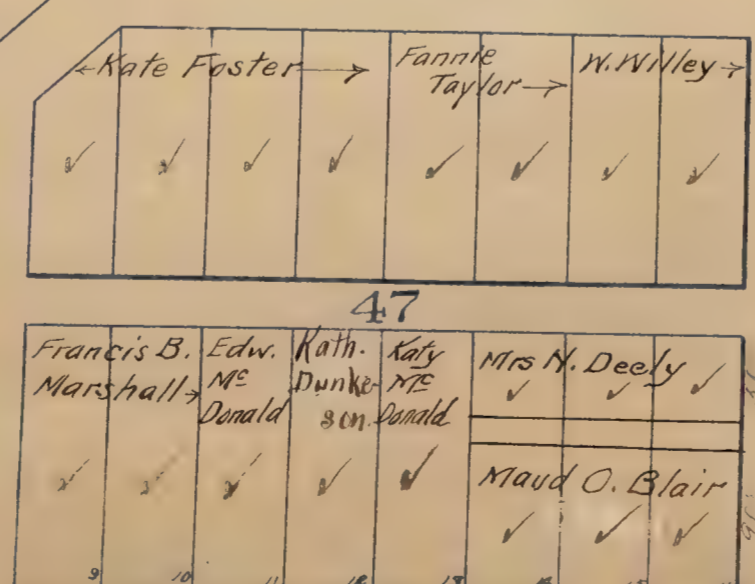 Kate Foster
Fannie
Taylor
W. Willey
47
Francis B.
Marshall
Edw.
Mc
Donald
Kath.
Dunke-
son.
Katy
Mc
Donald
Mrs N. Deely
Maud O. Blair
9 10 11 12 13